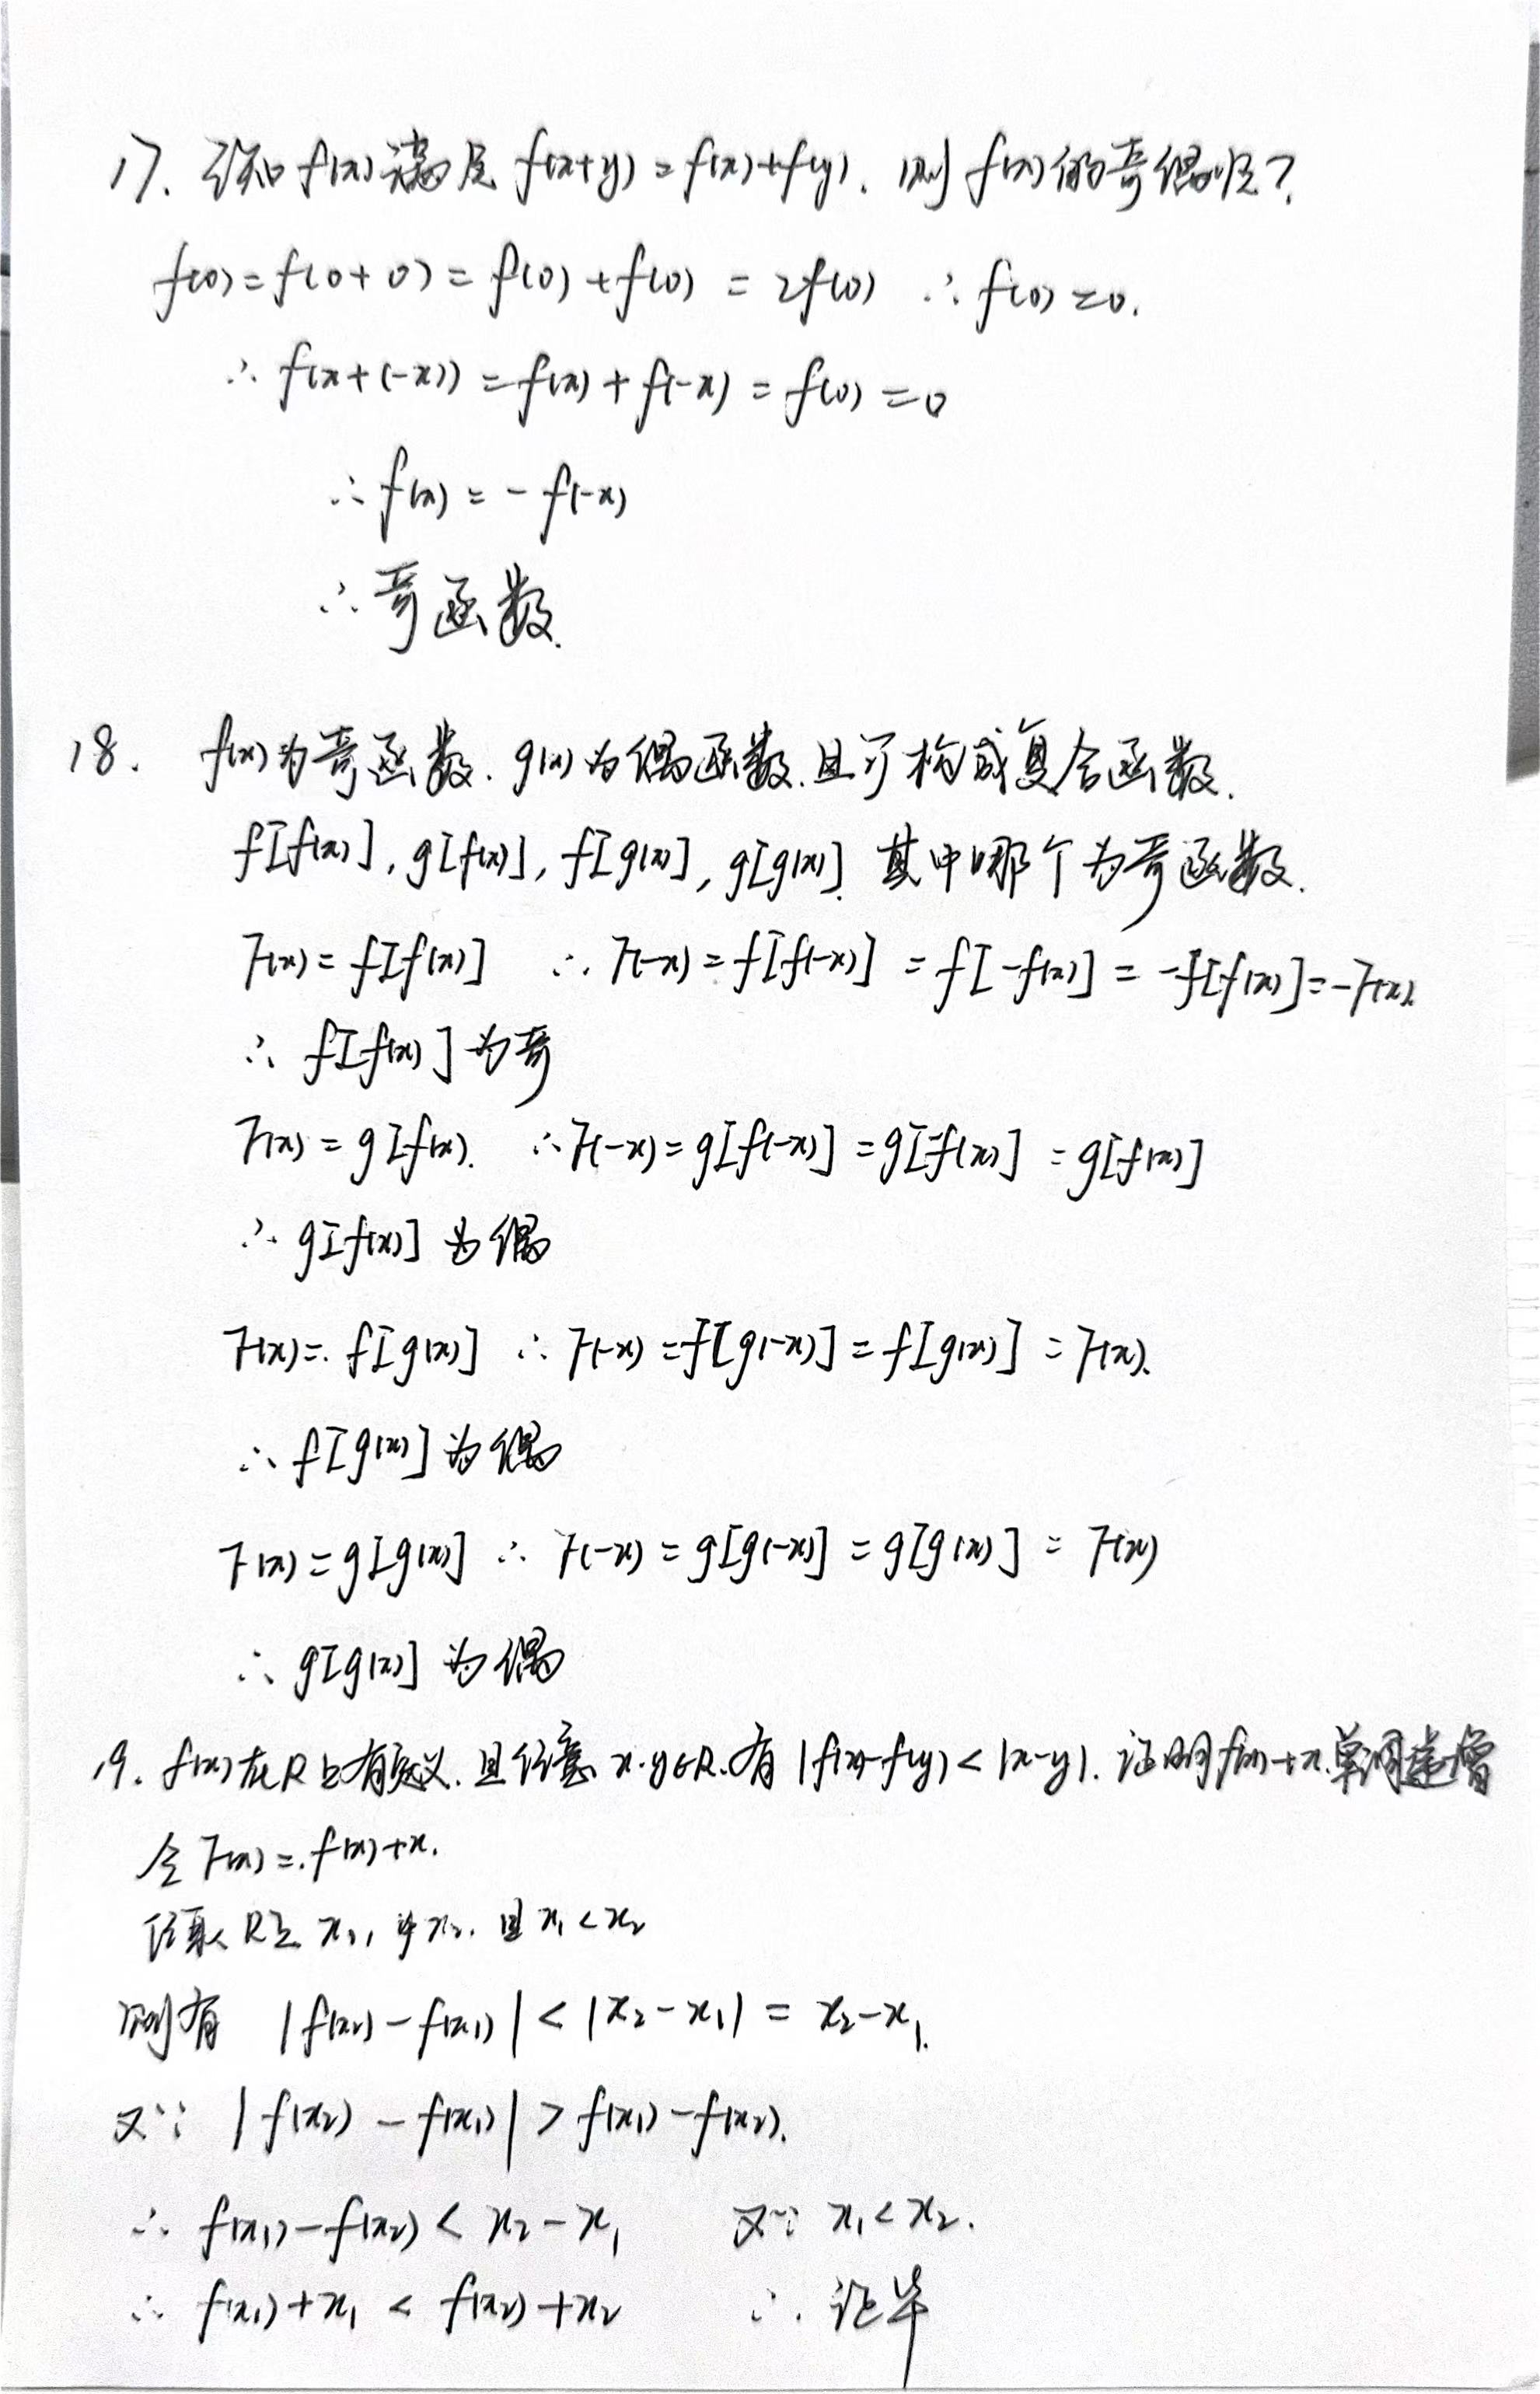 17. 已知 f(x) 满足 f(x+y) = f(x)+f(y). 则 f(x) 的奇偶性?
f(0) = f(0+0) = f(0)+f(0) = 2f(0) ∴ f(0)=0.
∴ f(x+(-x)) = f(x)+f(-x) = f(0) = 0
∴ f(x) = -f(-x)
∴ 奇函数.
18. f(x) 为奇函数. g(x) 为偶函数. 且可构成复合函数.
f[f(x)], g[f(x)], f[g(x)], g[g(x)]. 其中哪个为奇函数.
F(x) = f[f(x)] ∴ F(-x) = f[f(-x)] = f[-f(x)] = -f[f(x)] = -F(x).
∴ f[f(x)] 为奇
F(x) = g[f(x). ∴ F(-x) = g[f(-x)] = g[-f(x)] = g[f(x)]
∴ g[f(x)] 为偶
F(x) = f[g(x)] ∴ F(-x) = f[g(-x)] = f[g(x)] = F(x).
∴ f[g(x)] 为偶
F(x) = g[g(x)] ∴ F(-x) = g[g(-x)] = g[g(x)] = F(x)
∴ g[g(x)] 为偶
19. f(x) 在R上有定义. 且任意 x.y∈R. 有 |f(x)-f(y) < |x-y|. 证明 f(x)+x 单调递增
令 F(x) = f(x)+x.
任取 R上 x₁, x₂. 且 x₁ < x₂
则有 |f(x₂) - f(x₁)| < |x₂ - x₁| = x₂ - x₁.
又∵ |f(x₂) - f(x₁)| > f(x₁) - f(x₂).
∴ f(x₁) - f(x₂) < x₂ - x₁ 又∵ x₁ < x₂.
∴ f(x₁)+x₁ < f(x₂)+x₂ ∴. 证毕